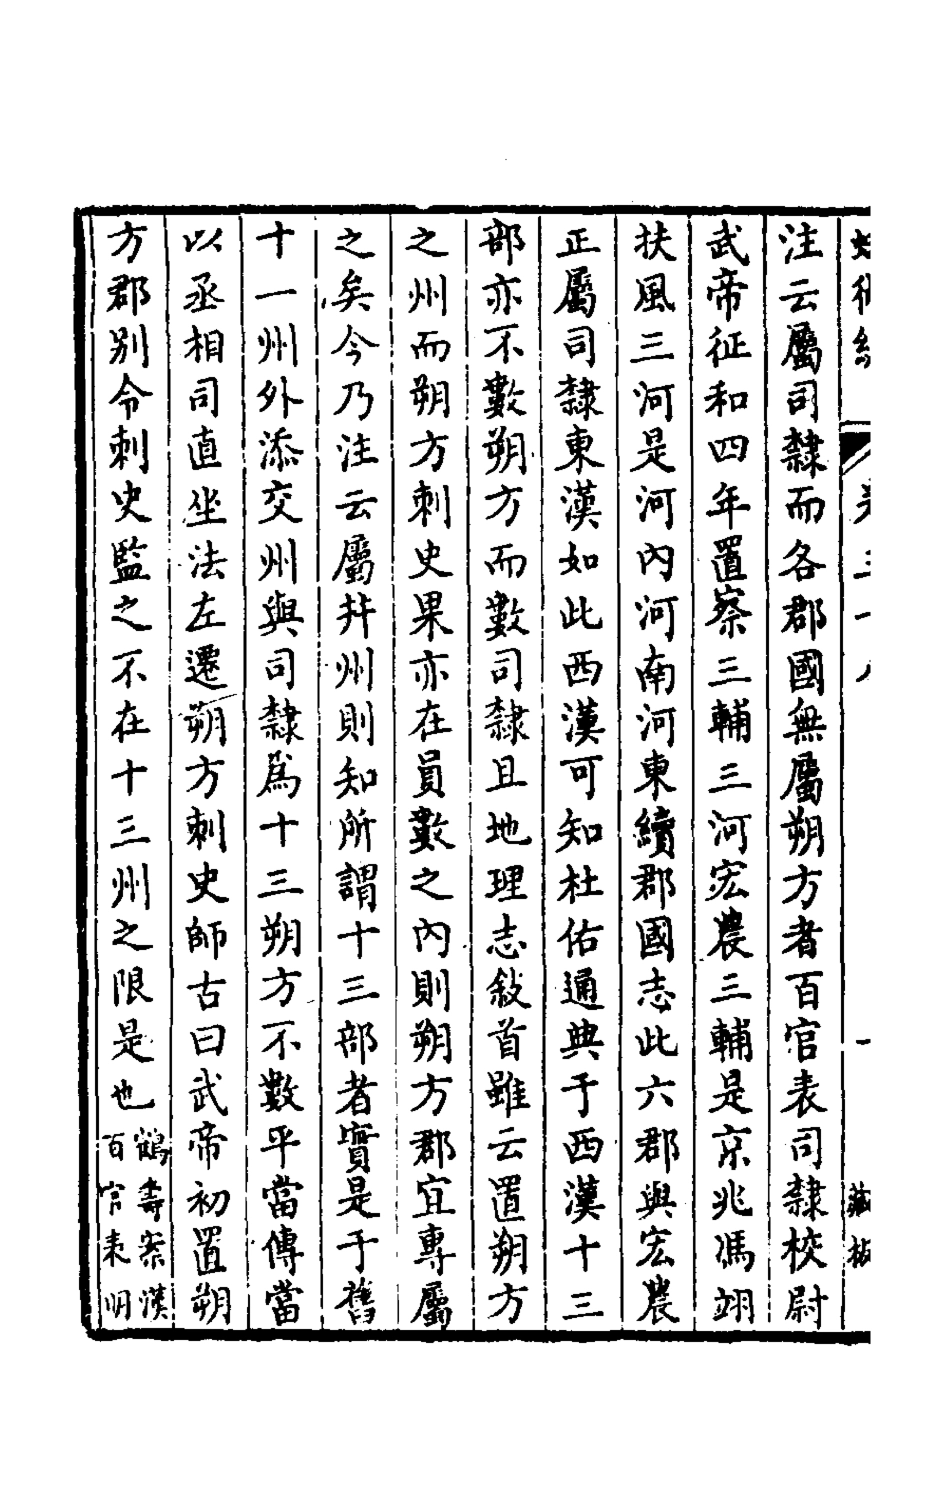 注云屬司隸而各郡國無屬朔方者百官表司隸校尉
武帝征和四年置察三輔三河宏農三輔是京兆馮翊
扶風三河是河內河南河東續郡國志此六郡與宏農
正屬司隸東漢如此西漢可知杜佑通典于西漢十三
部亦不數朔方而數司隸且地理志敍首雖云置朔方
之州而朔方刺史果亦在員數之內則朔方郡宜專屬
之矣今乃注云屬幷州則知所謂十三部者實是于舊
十一州外添交州與司隸爲十三朔方不數平當傳當
以丞相司直坐法左遷朔方刺史師古曰武帝初置朔
方郡別令刺史監之不在十三州之限是也
鶴壽案漢
百官表明
藏板